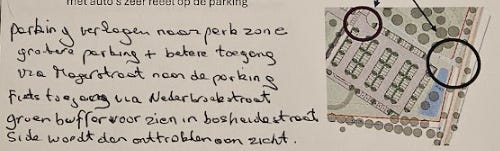 met auto's zeer reëel op de parking
parking verlagen naar perk zone
grotere parking + betere toegang
via Hogerstraat naar de parking
Fiets toegang via Nederbroekstraat
groen buffer voor zien in bosheidestraat
Side wordt dan onttrokken aan zicht.